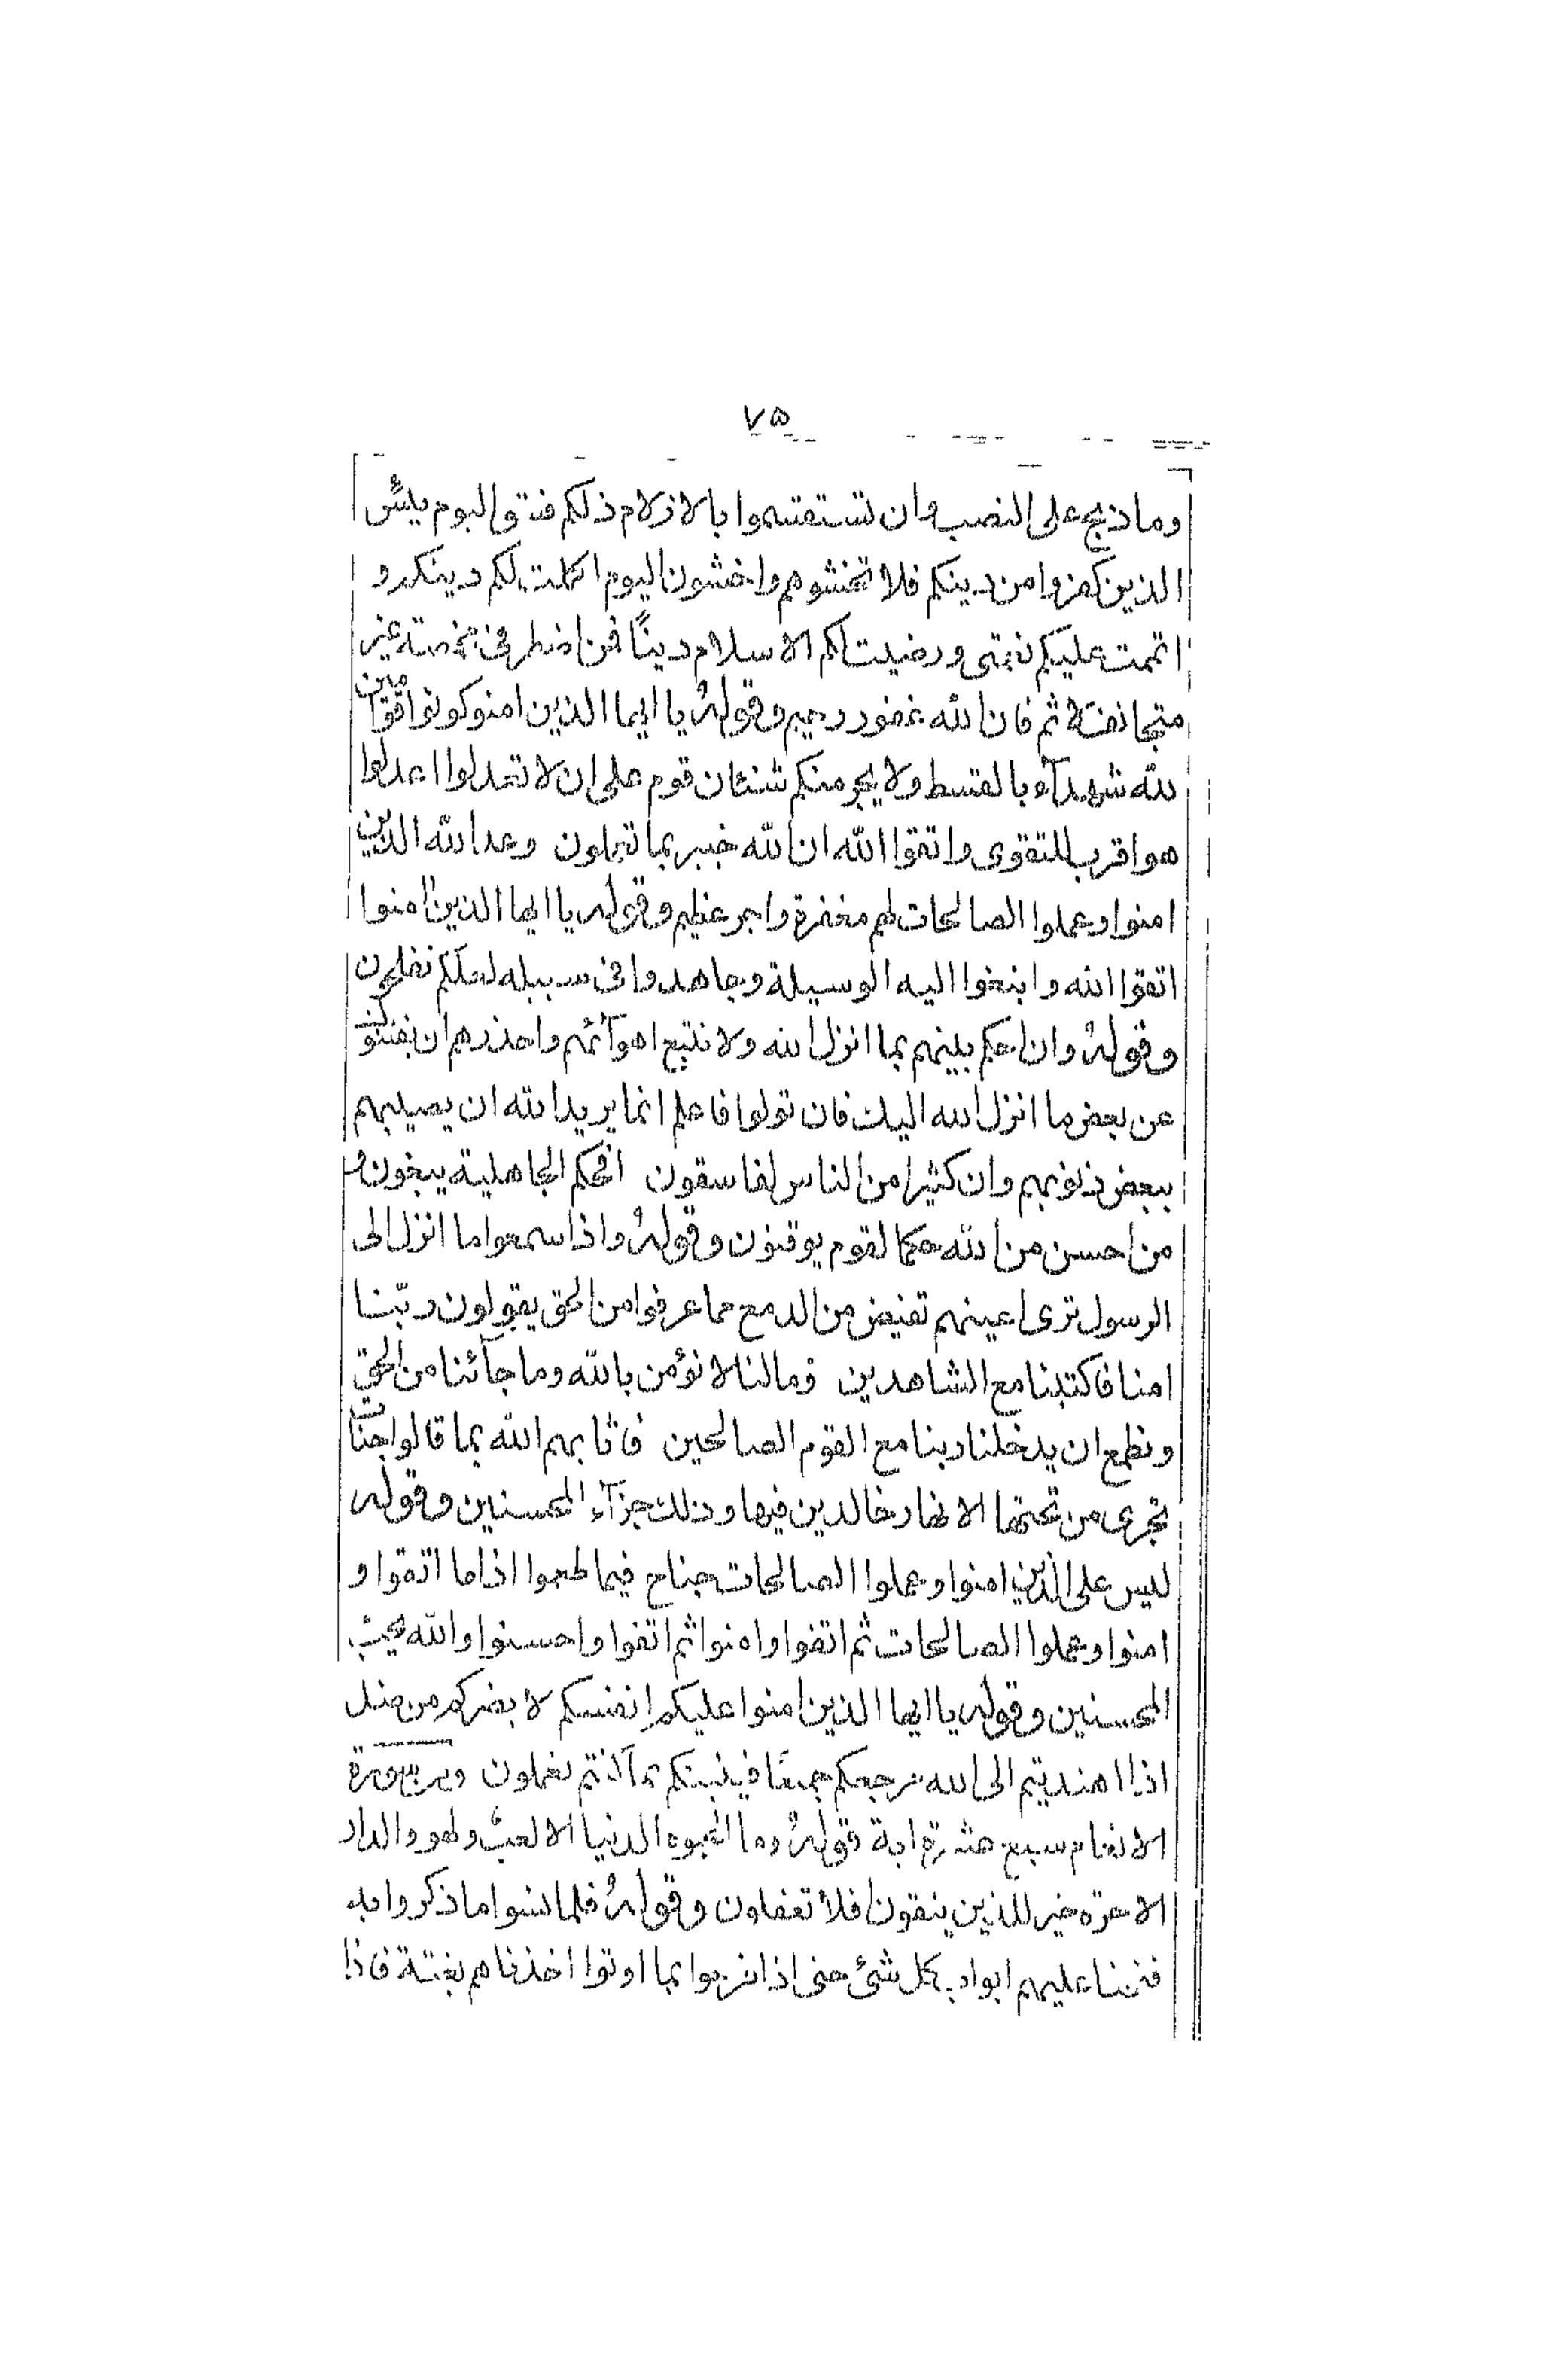 ٧٥
وما ذبح على النصب وان تستقسموا بالازلام ذلكم فسق اليوم يئس
الذين كفروا من دينكم فلا تخشوهم واخشون اليوم اكملت لكم دينكم و
اتممت عليكم نعمتى ورضيت لكم الاسلام دينًا فمن اضطر فى مخمصة غير
متجانف لاثم فان الله غفور رحيم وقولهُ يا ايها الذين امنو كونوا قوّامين
لله شهدآء بالقسط ولا يجرمنكم شنئان قوم على ان لا تعدلوا اعدلوا
هو اقرب للتقوى واتقوا الله ان الله خبير بما تعملون وعد الله الذين
امنوا وعملوا الصالحات لهم مغفرة واجر عظيم وقوله يا ايها الذين امنوا
اتقوا الله وابتغوا اليه الوسيلة وجاهدوا فى سبيله لعلكم تفلحون
وقولهُ وان احكم بينهم بما انزل الله ولا تتبع اهوآئهم واحذرهم ان يفتنوك
عن بعض ما انزل الله اليك فان تولوا فاعلم انما يريد الله ان يصيبهم
ببعض ذنوبهم وان كثيرا من الناس لفاسقون افحكم الجاهلية يبغون و
من احسن من الله حكما لقوم يوقنون وقولهُ واذا سمعوا ما انزل الى
الرسول ترى اعينهم تفيض من الدمع مما عرفوا من الحق يقولون ربّنا
امنا فاكتبنا مع الشاهدين وما لنا لا نؤمن بالله وما جآئنا من الحق
ونطمع ان يدخلنا ربنا مع القوم الصالحين فاثابهم الله بما قالوا جنّات
تجرى من تحتها الانهار خالدين فيها وذلك جزآء المحسنين وقوله
ليس على الّذين امنوا وعملوا الصالحات جناح فيما طعموا اذا ما اتقوا و
امنوا وعملوا الصالحات ثم اتقوا وامنوا ثم اتقوا واحسنوا والله يحبّ
المحسنين وقوله يا ايها الذين امنوا عليكم انفسكم لا يضركم من ضل
اذا اهتديتم الى الله مرجعكم جميعًا فينبئكم بما كنتم تعملون ومن سورة
الانعام سبع عشرة اية قولهُ وما الحيوه الدنيا الا لعبٌ ولهو وللدار
الاخرة خير للذين يتقون افلا تعقلون وقولهُ فلما نسوا ما ذكروا به
فتحنا عليهم ابواب كل شئ حتى اذا فرحوا بما اوتوا اخذناهم بغتة فاذا